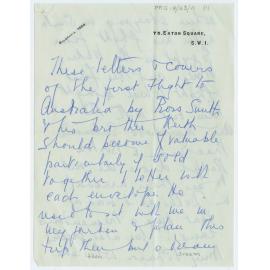 PRG 18/63/1 P1
78. EATON SQUARE,
S.W.1.
These letters & covers
of the first flight to
Australia by Ross Smith
& his brother Keith
should become of valuable
particularly if sold
together, letter with
each envelope. He
used to sit with me in
my garden & plan this
trip then but a dream